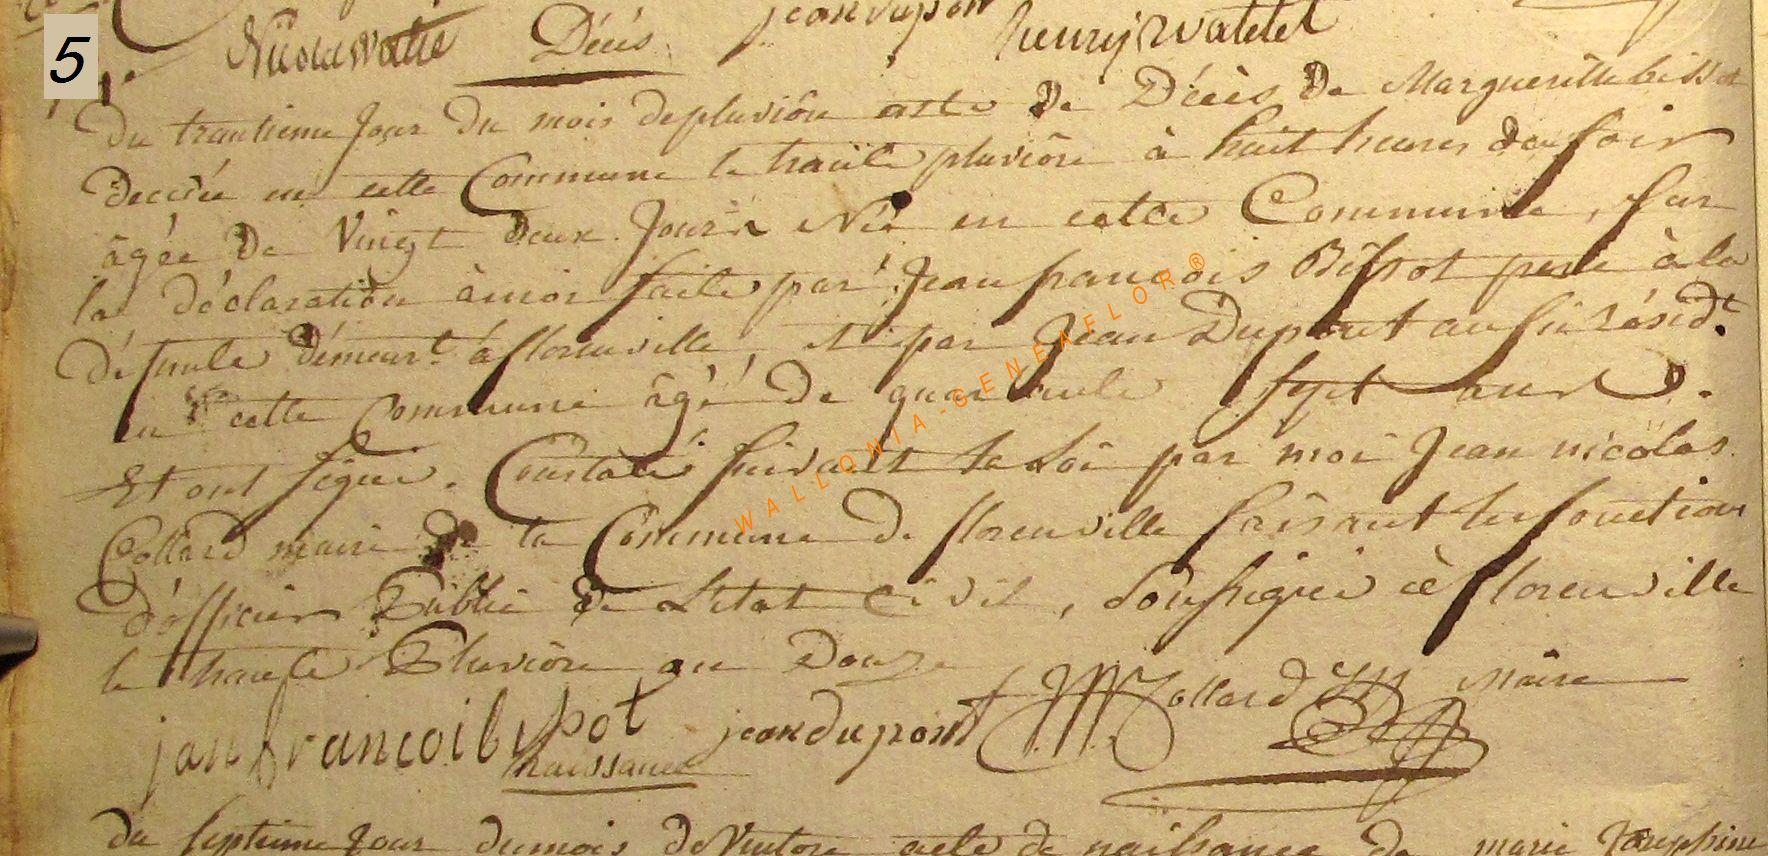 5
jean dupont
Nicolas watlet Décés henry watelet
Du trantieme Jour Du mois de pluviôse acte De Décès De Margueritte bissot
Decedée en cette Commune le trante pluviôse à huit heures du soir
âgée De Vingt deux Jours Née en cette Commune, sur
la déclaration à moi faite par Jean françois Bissot pere à la
défunte démeurt. à florenville, et par Jean Dupont aussi résidt.
en cette Commune âgé De quarante sept ans.
Et ont signé. Constaté suivant la Loi par moi Jean nicolas
Collard maire De la Commune De florenville faisant les fonctions
D'officier Public De L'état Civil, Soussigné à florenville
le trante Pluviôse an Douze
Collard Maire
jan francoi bispot jean dupont
Naissance
Du septieme Jour du mois De Ventose acte de naissance De marie Josephine
WALLONIA-GENEAELOR®